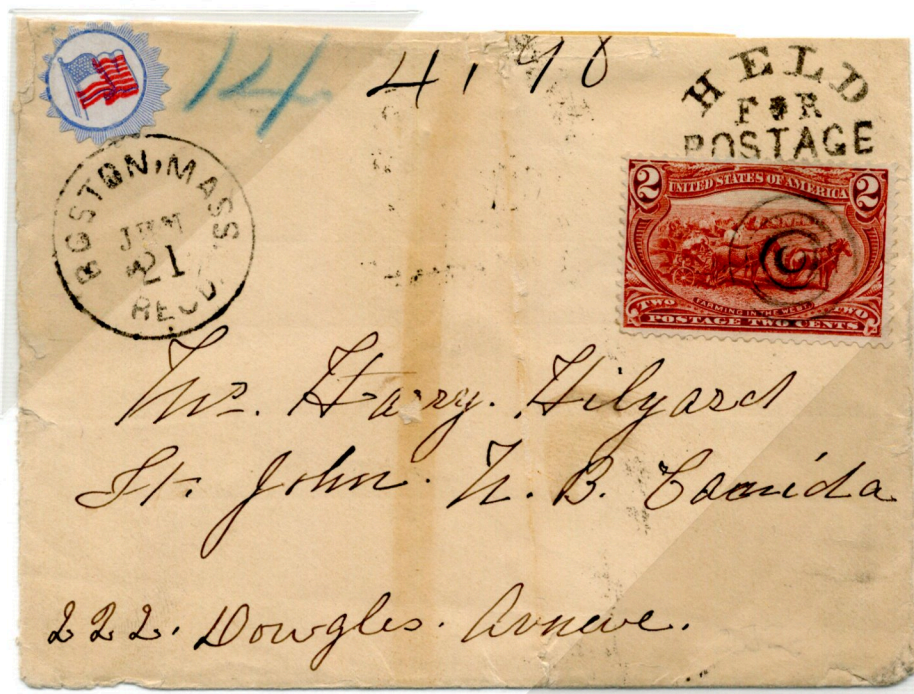 14
4, 98
HELD
FOR
POSTAGE
BOSTON, MASS.
JUN
21
RECD.
2 UNITED STATES OF AMERICA 2
FARMING IN THE WEST
TWO TWO
POSTAGE TWO CENTS
Mr. Harry. Hilyard
St. John. N. B. Canida
222. Dowgles. Avneue.